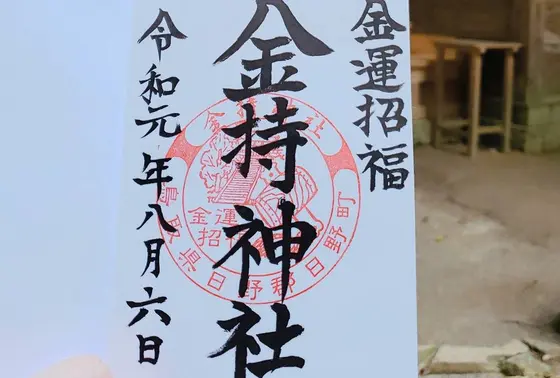 金運招福
金持神社
令和元年八月六日
金持神社
金運
招福
鳥取県日野郡日野町